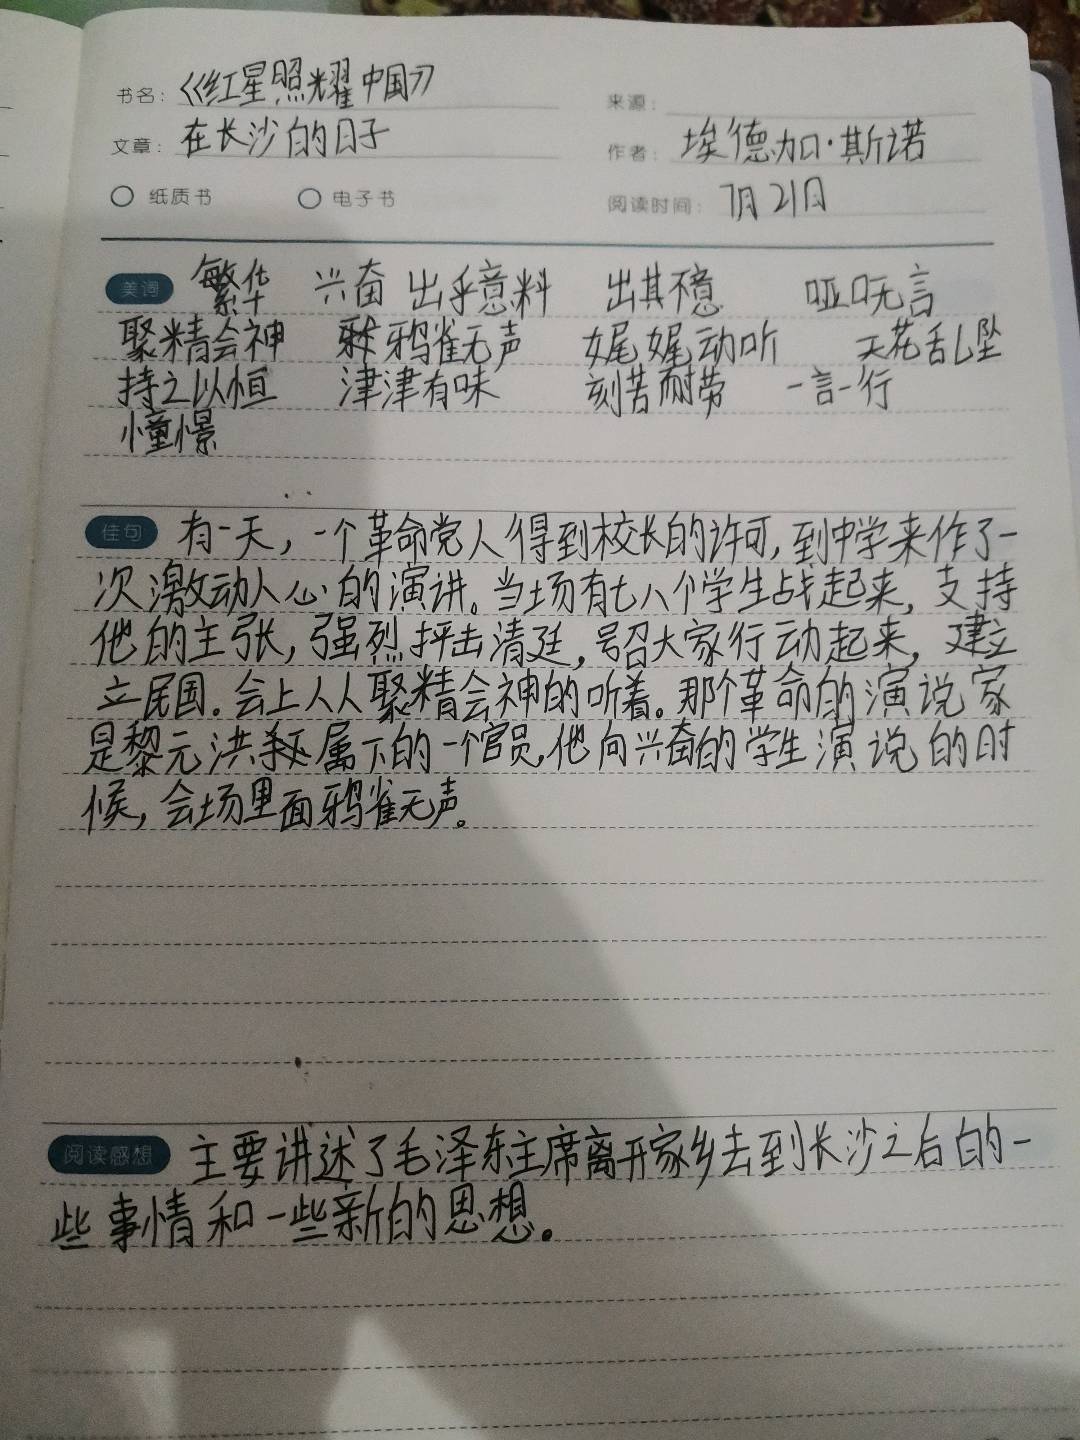 书名：《红星照耀中国》
来源：
文章：在长沙的日子
作者：埃德加·斯诺
纸质书 电子书
阅读时间：7月21日
美词 繁华 兴奋 出乎意料 出其不意 哑口无言
聚精会神 鸦雀无声 娓娓动听 天花乱坠
持之以恒 津津有味 刻苦耐劳 一言一行
憧憬
佳句 有一天，一个革命党人得到校长的许可，到中学来作了一
次激动人心的演讲。当场有七八个学生站起来，支持
他的主张，强烈抨击清廷，号召大家行动起来，建立
立民国。会上人人聚精会神的听着。那个革命的演说家
是黎元洪属下的一个官员，他向兴奋的学生演说的时
候，会场里面鸦雀无声。
阅读感想 主要讲述了毛泽东主席离开家乡去到长沙之后的一
些事情和一些新的思想。